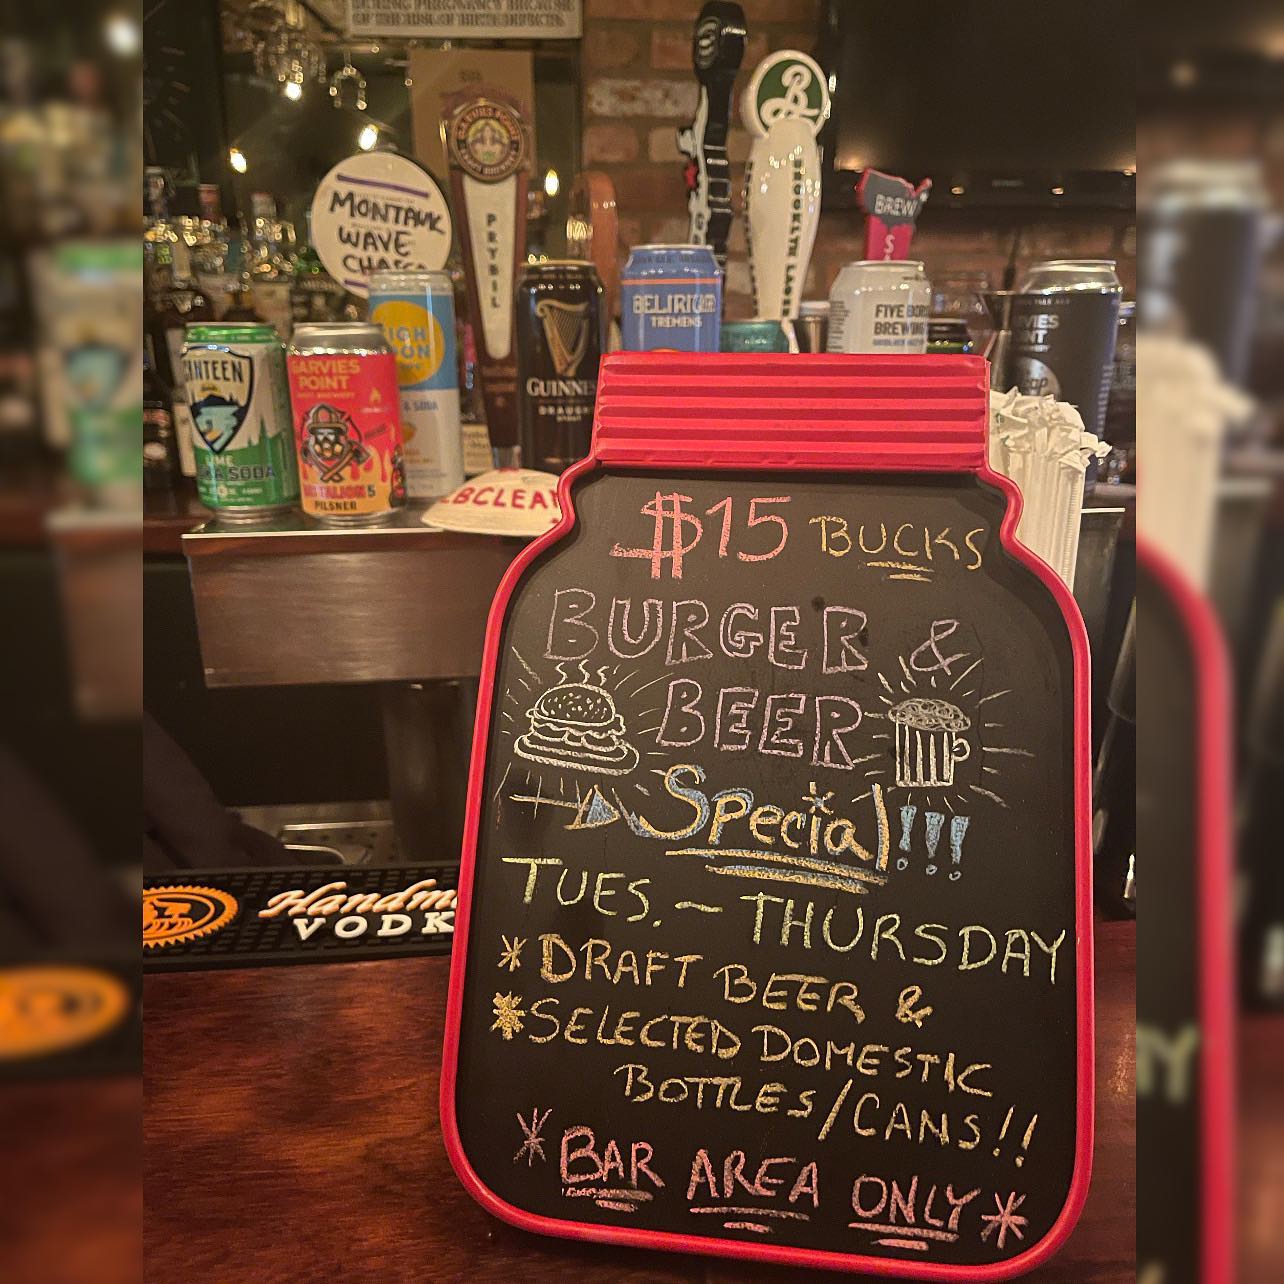 MONTAUK
WAVE
PRYBIL
BROOKLYN LAGER
BREW
S
TREMENS
GUINNESS
DRAUGHT
GARVIES
POINT
PILSNER
& SODA
SODA
FIVE
BREWING
$15 BUCKS
BURGER &
BEER
Special!!!
TUES. ~ THURSDAY
*DRAFT BEER &
*SELECTED DOMESTIC
BOTTLES/CANS!!
*BAR AREA ONLY*
VODK